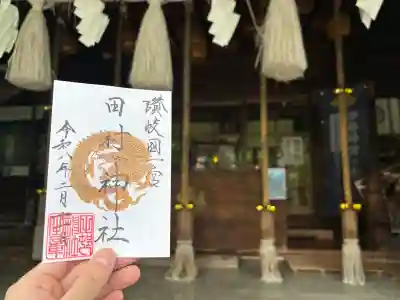 讃岐國一宮
田村神社
令和八年二月